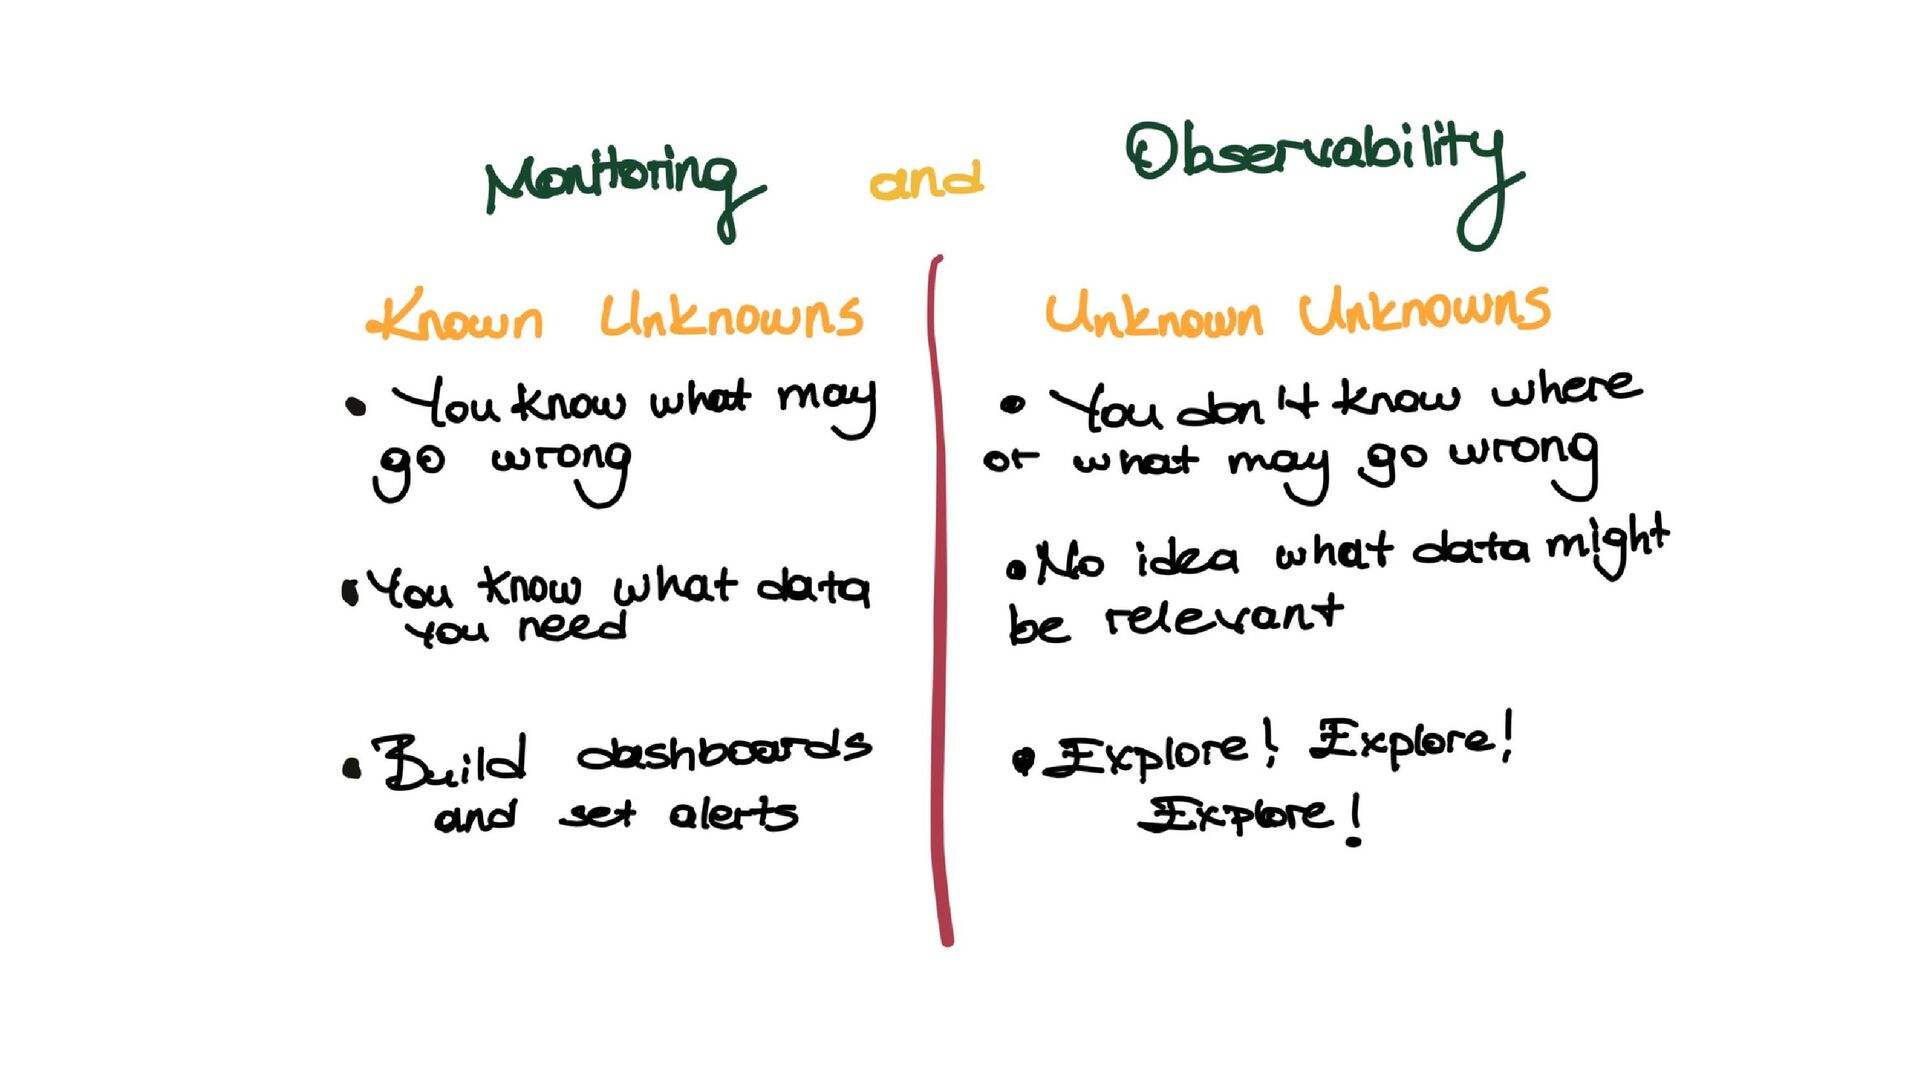 Monitoring and Observability
Known Unknowns
• You know what may
go wrong
• You know what data
you need
• Build dashboards
and set alerts
Unknown Unknowns
• You don't know where
or what may go wrong
• No idea what data might
be relevant
• Explore! Explore!
Explore!